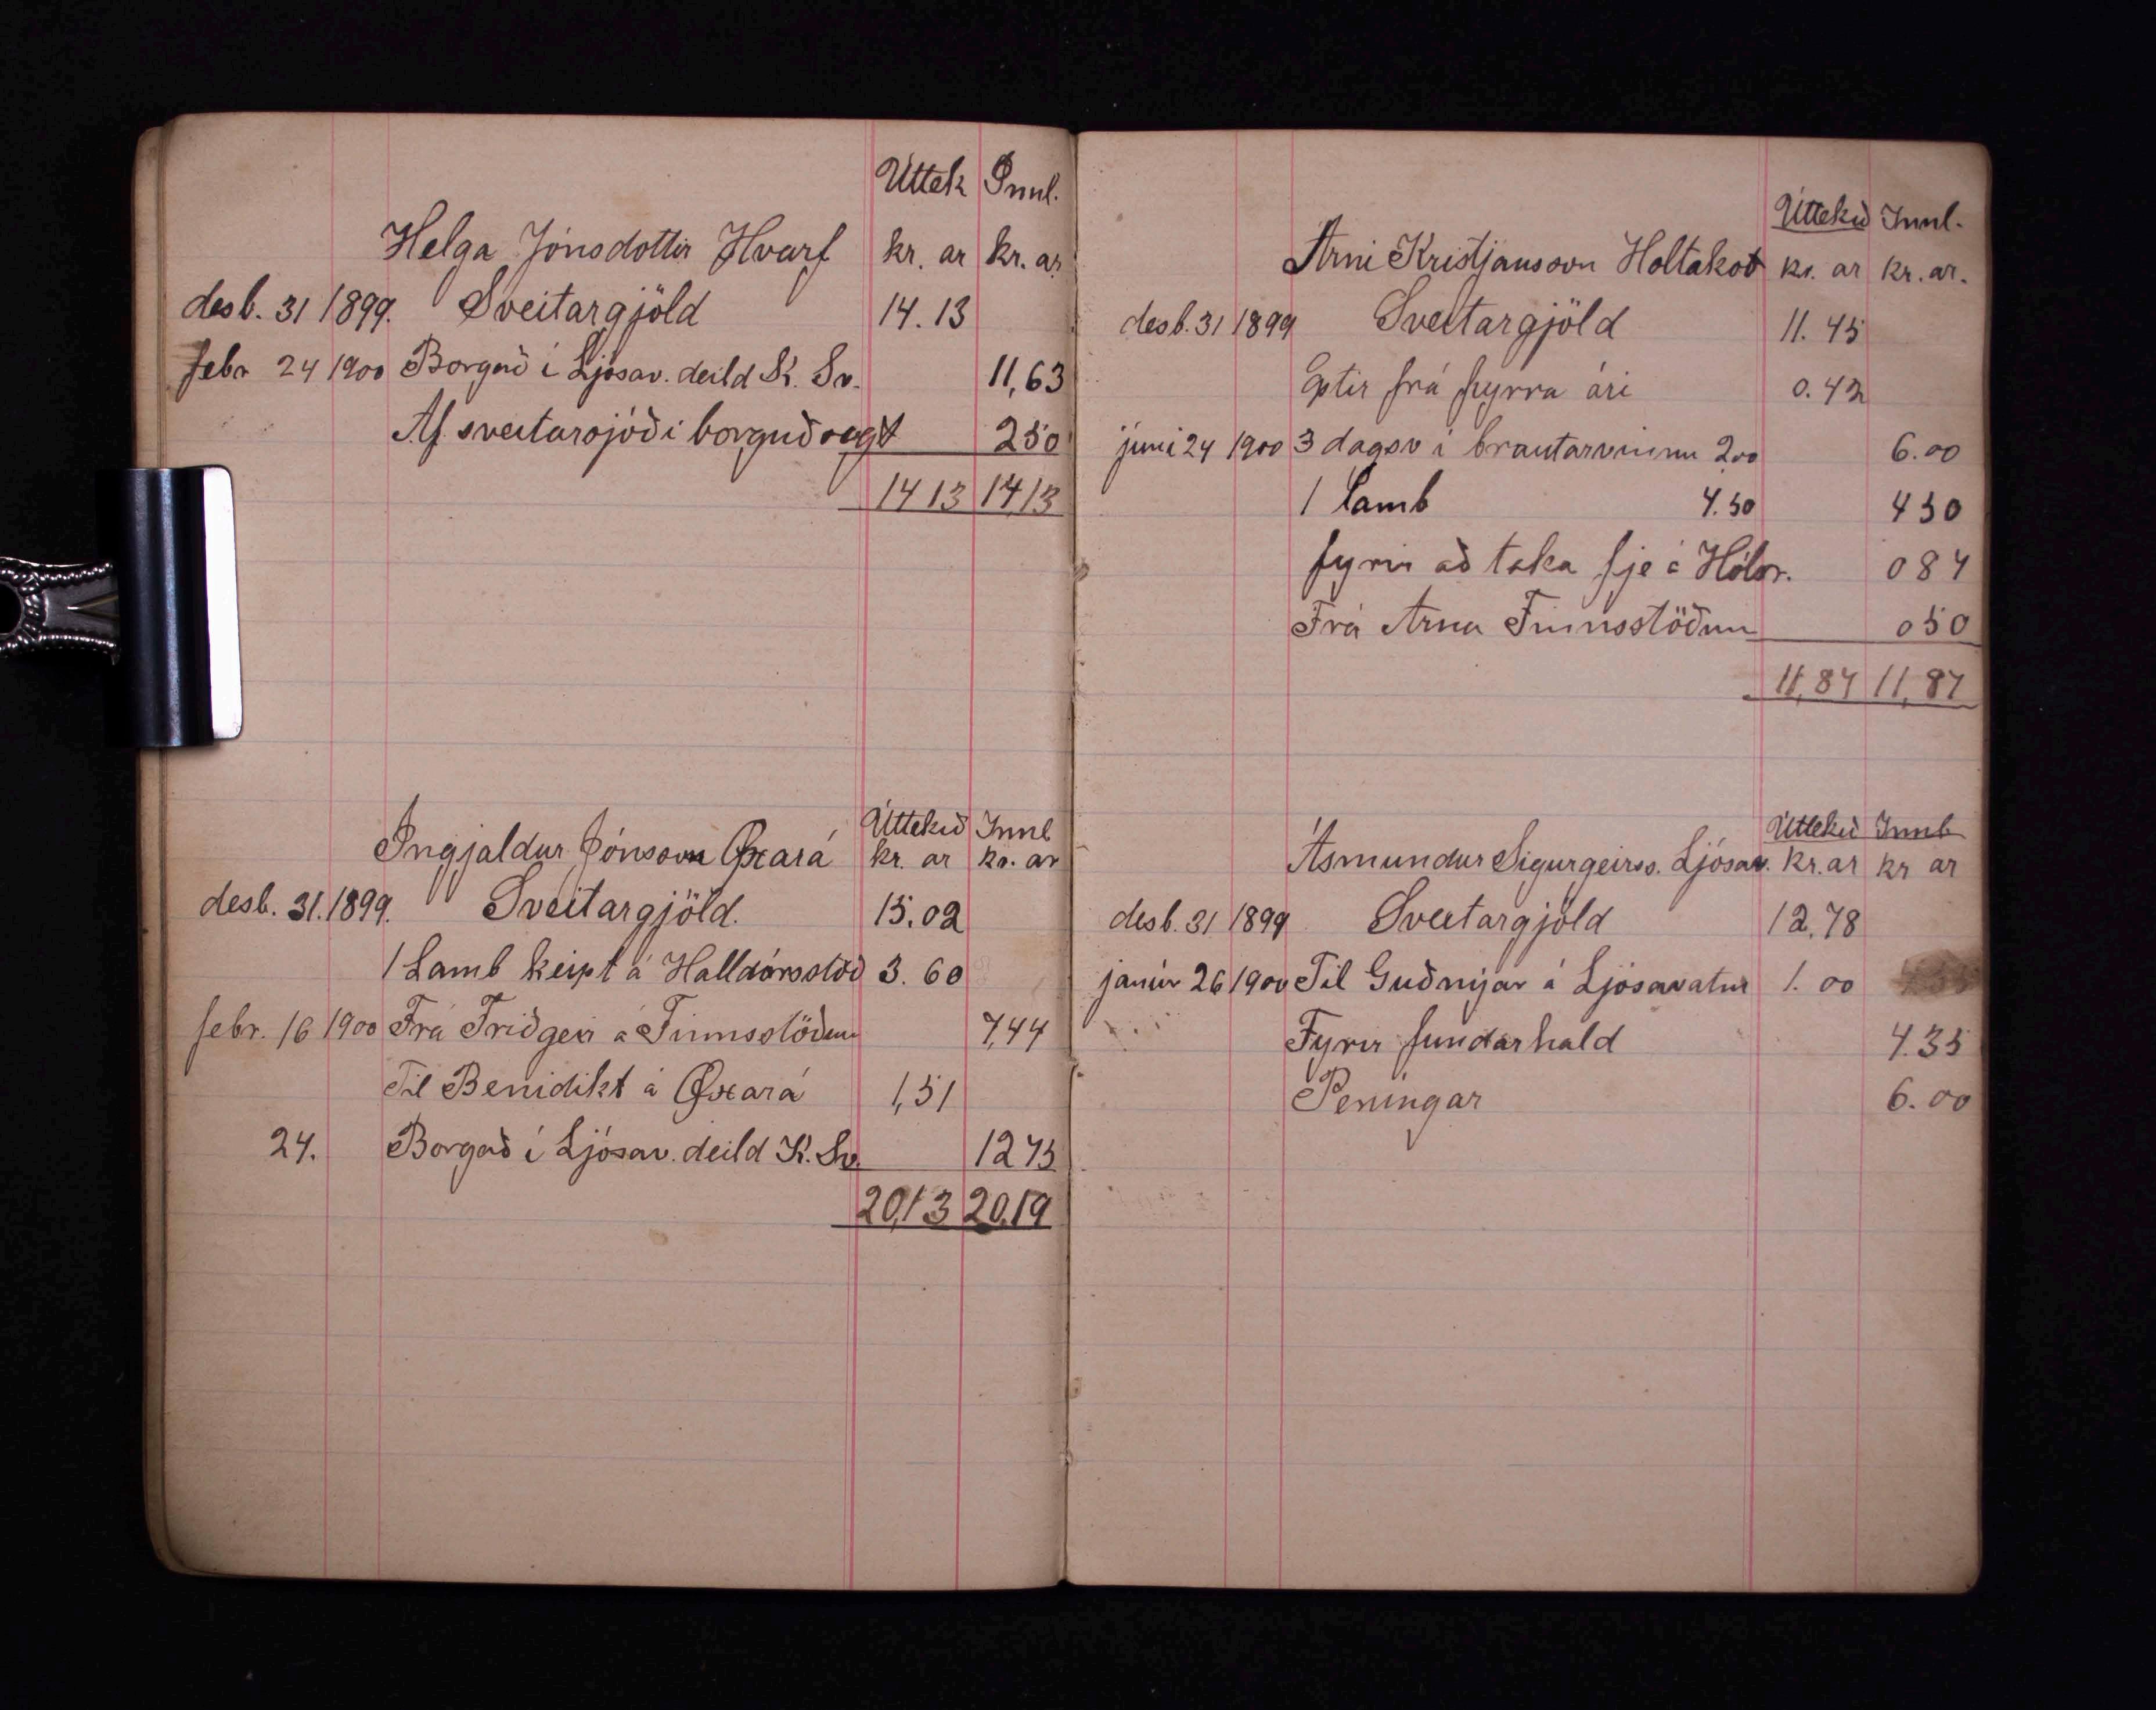 Úttek Innl.
Helga Jónsdottir Hvarf kr. ar kr. ar
desb. 31 1899. Sveitargjöld 14.13
febr 24 1900 Borgað í Ljósav. deild K. Sv. 11,63
Af sveitarsjóði borguð 250
1413 1413
Úttekið Innl
Ingjaldur Jónsson Øxará kr. ar kr. ar
desb. 31. 1899. Sveitargjöld. 15.02
1 Lamb keipt á Halldórsstöð 3.60
febr. 16 1900 Frá Friðgeir á Finnsstöðum 7,44
Til Benidikt á Øxará 1,51
24. Borgað í Ljósav. deild K. Sv. 1275
20,13 20,19
Úttekið Innl.
Árni Kristjansson Holtakot kr. ar kr. ar.
desb. 31 1899 Sveitargjöld 11.45
Eptir frá fyrra ári 0.42
juni 24 1900 3 dagsv í brautarvinnu 200 6.00
1 lamb 4.50 450
fyrir að taka fje á Hólsr. 084
Frá Arna Finnsstöðum 050
11,87 11,87
Úttekið Innl
Ásmundur Sigurgeirss. Ljósav. kr. ar kr ar
desb. 31 1899 Sveitargjöld 12.78
janúr 26 1900 Til Guðnýjar á Ljósavatni 1.00
Fyrir fundarhald 4.35
Peningar 6.00